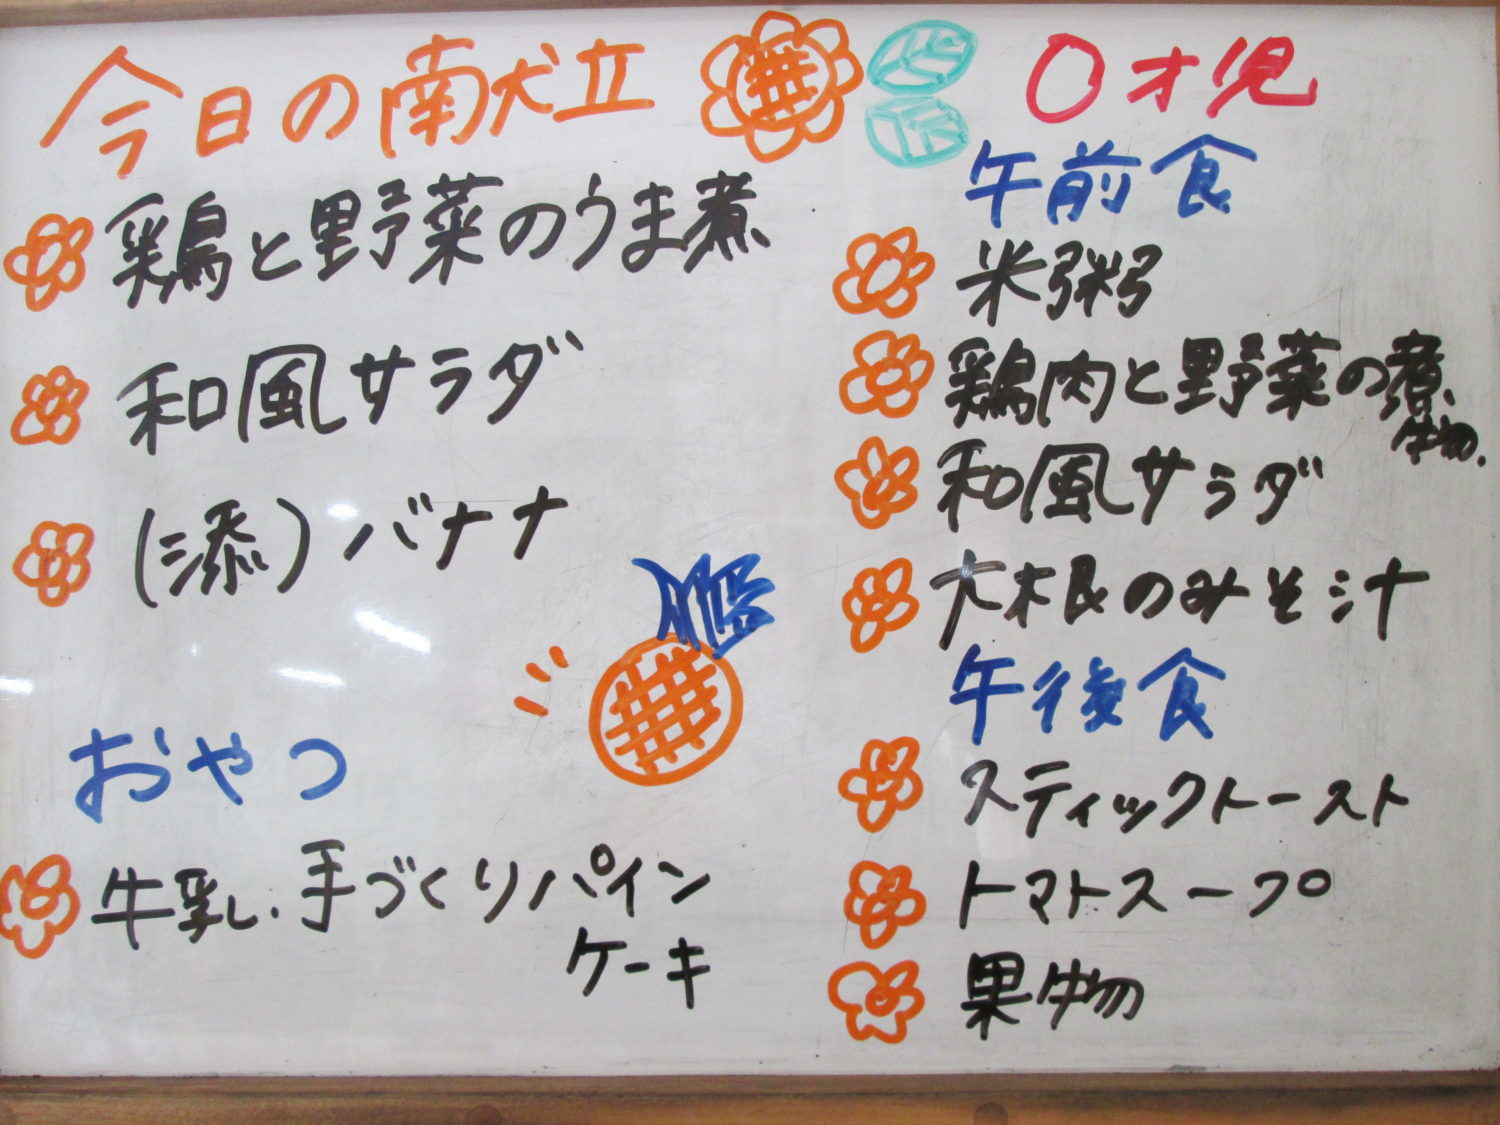 今日の献立
鶏と野菜のうま煮
和風サラダ
(添)バナナ
おやつ
牛乳.手づくりパイン
ケーキ
0才児
午前食
米粥
鶏肉と野菜の煮
物.
和風サラダ
大根のみそ汁
午後食
スティックトースト
トマトスープ
果物